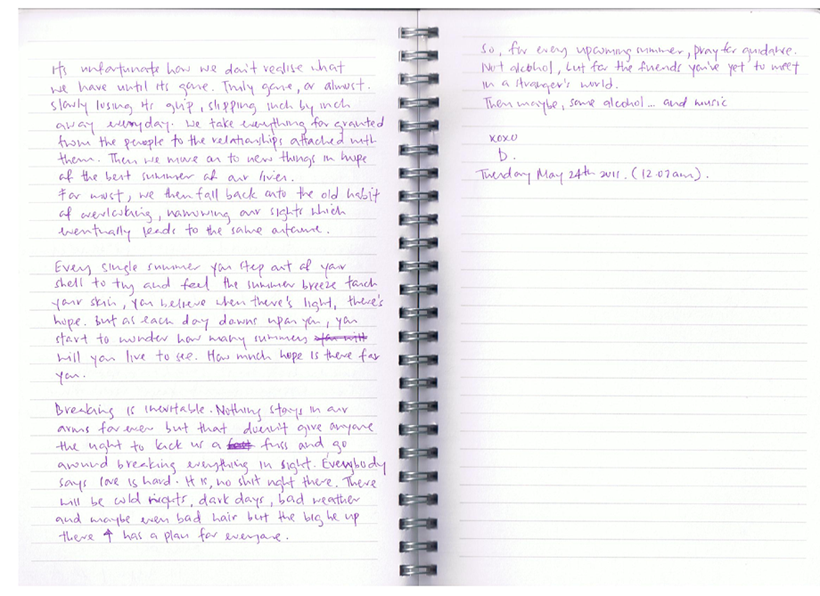 It's unfortunate how we don't realise what
we have until its gone. Truly gone, or almost.
slowly losing its grip, slipping inch by inch
away everyday. We take everything for granted
from the people to the relationships attached with
them. Then we move on to new things in hope
of the best summer of our lives.
For most, we then fall back onto the old habit
of overlooking, narrowing our sights which
eventually leads to the same outcome.
Every single summer you step out of your
shell to try and feel the summer breeze touch
your skin, you believe when there's light, there's
hope. But as each day dawns upon you, you
start to wonder how many summers
will you live to see. How much hope is there for
you.
Breaking is inevitable. Nothing stays in our
arms forever but that doesn't give anyone
the right to kick us a fuss and go
around breaking everything in sight. Everybody
says love is hard. It is, no shit right there. There
will be cold nights, dark days, bad weather
and maybe even bad hair but the big he up
there ↑ has a plan for everyone.
So, for every upcoming summer, pray for guidance.
Not alcohol, but for the friends you've yet to meet
in a stranger's world.
Then maybe, some alcohol... and music
xoxo
b.
Tuesday May 24th 2011. (12.07am).